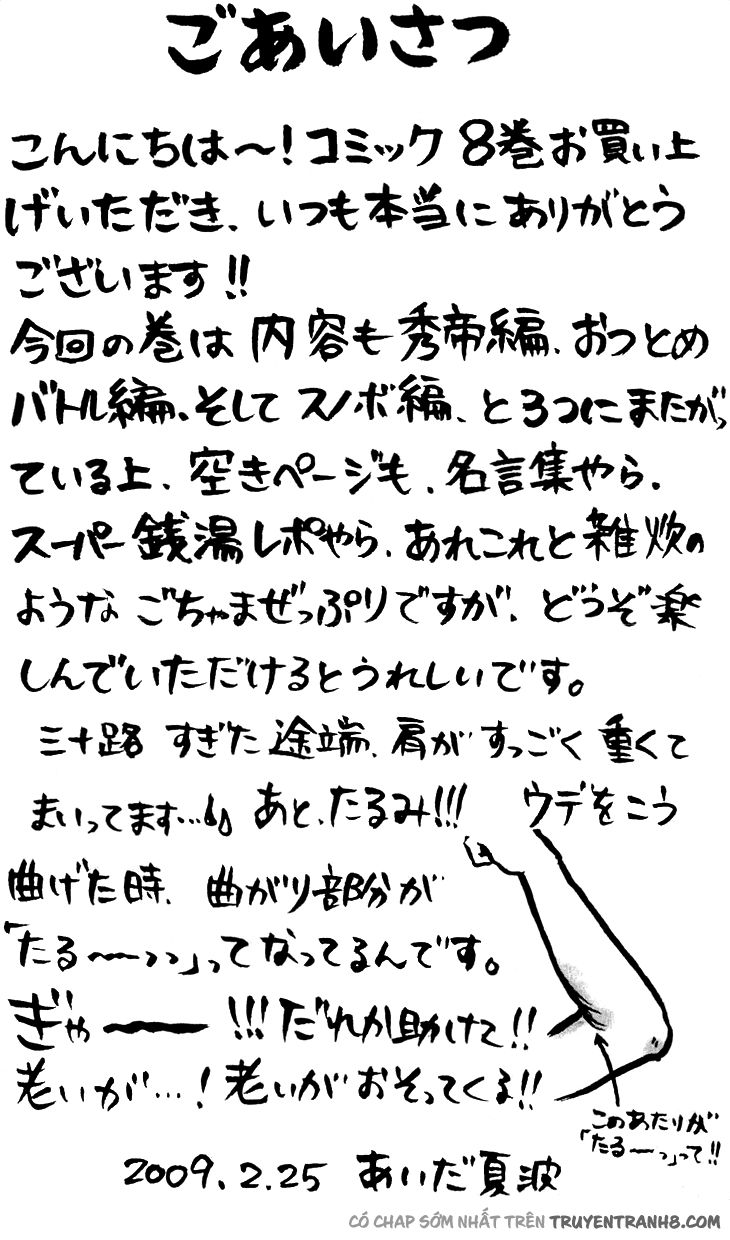 ごあいさつ
こんにちは〜!コミック8巻お買い上
げいただき、いつも本当にありがとう
ございます!!
今回の巻は内容も秀帝編、おつとめ
バトル編、そしてスノボ編、と3つにまたがっ
ている上、空きページも、名言集やら、
スーパー銭湯レポやら、あれこれと雑炊の
ようなごちゃまぜっぷりですが、どうぞ楽
しんでいただけるとうれしいです。
三十路すぎた途端、肩がすっごく重くて
まいってます…あと、たるみ!!!ウデをこう
曲げた時、曲がり部分が
「たる〜〜っっ」ってなってるんです。
ぎゃーーー!!!だれか助けて!!
老いが…!老いがおそってくる!!
このあたりが
「たる〜っ」って!!
2009.2.25 あいだ夏波
CÓ CHAP SỚM NHẤT TRÊN TRUYENTRANH8.COM